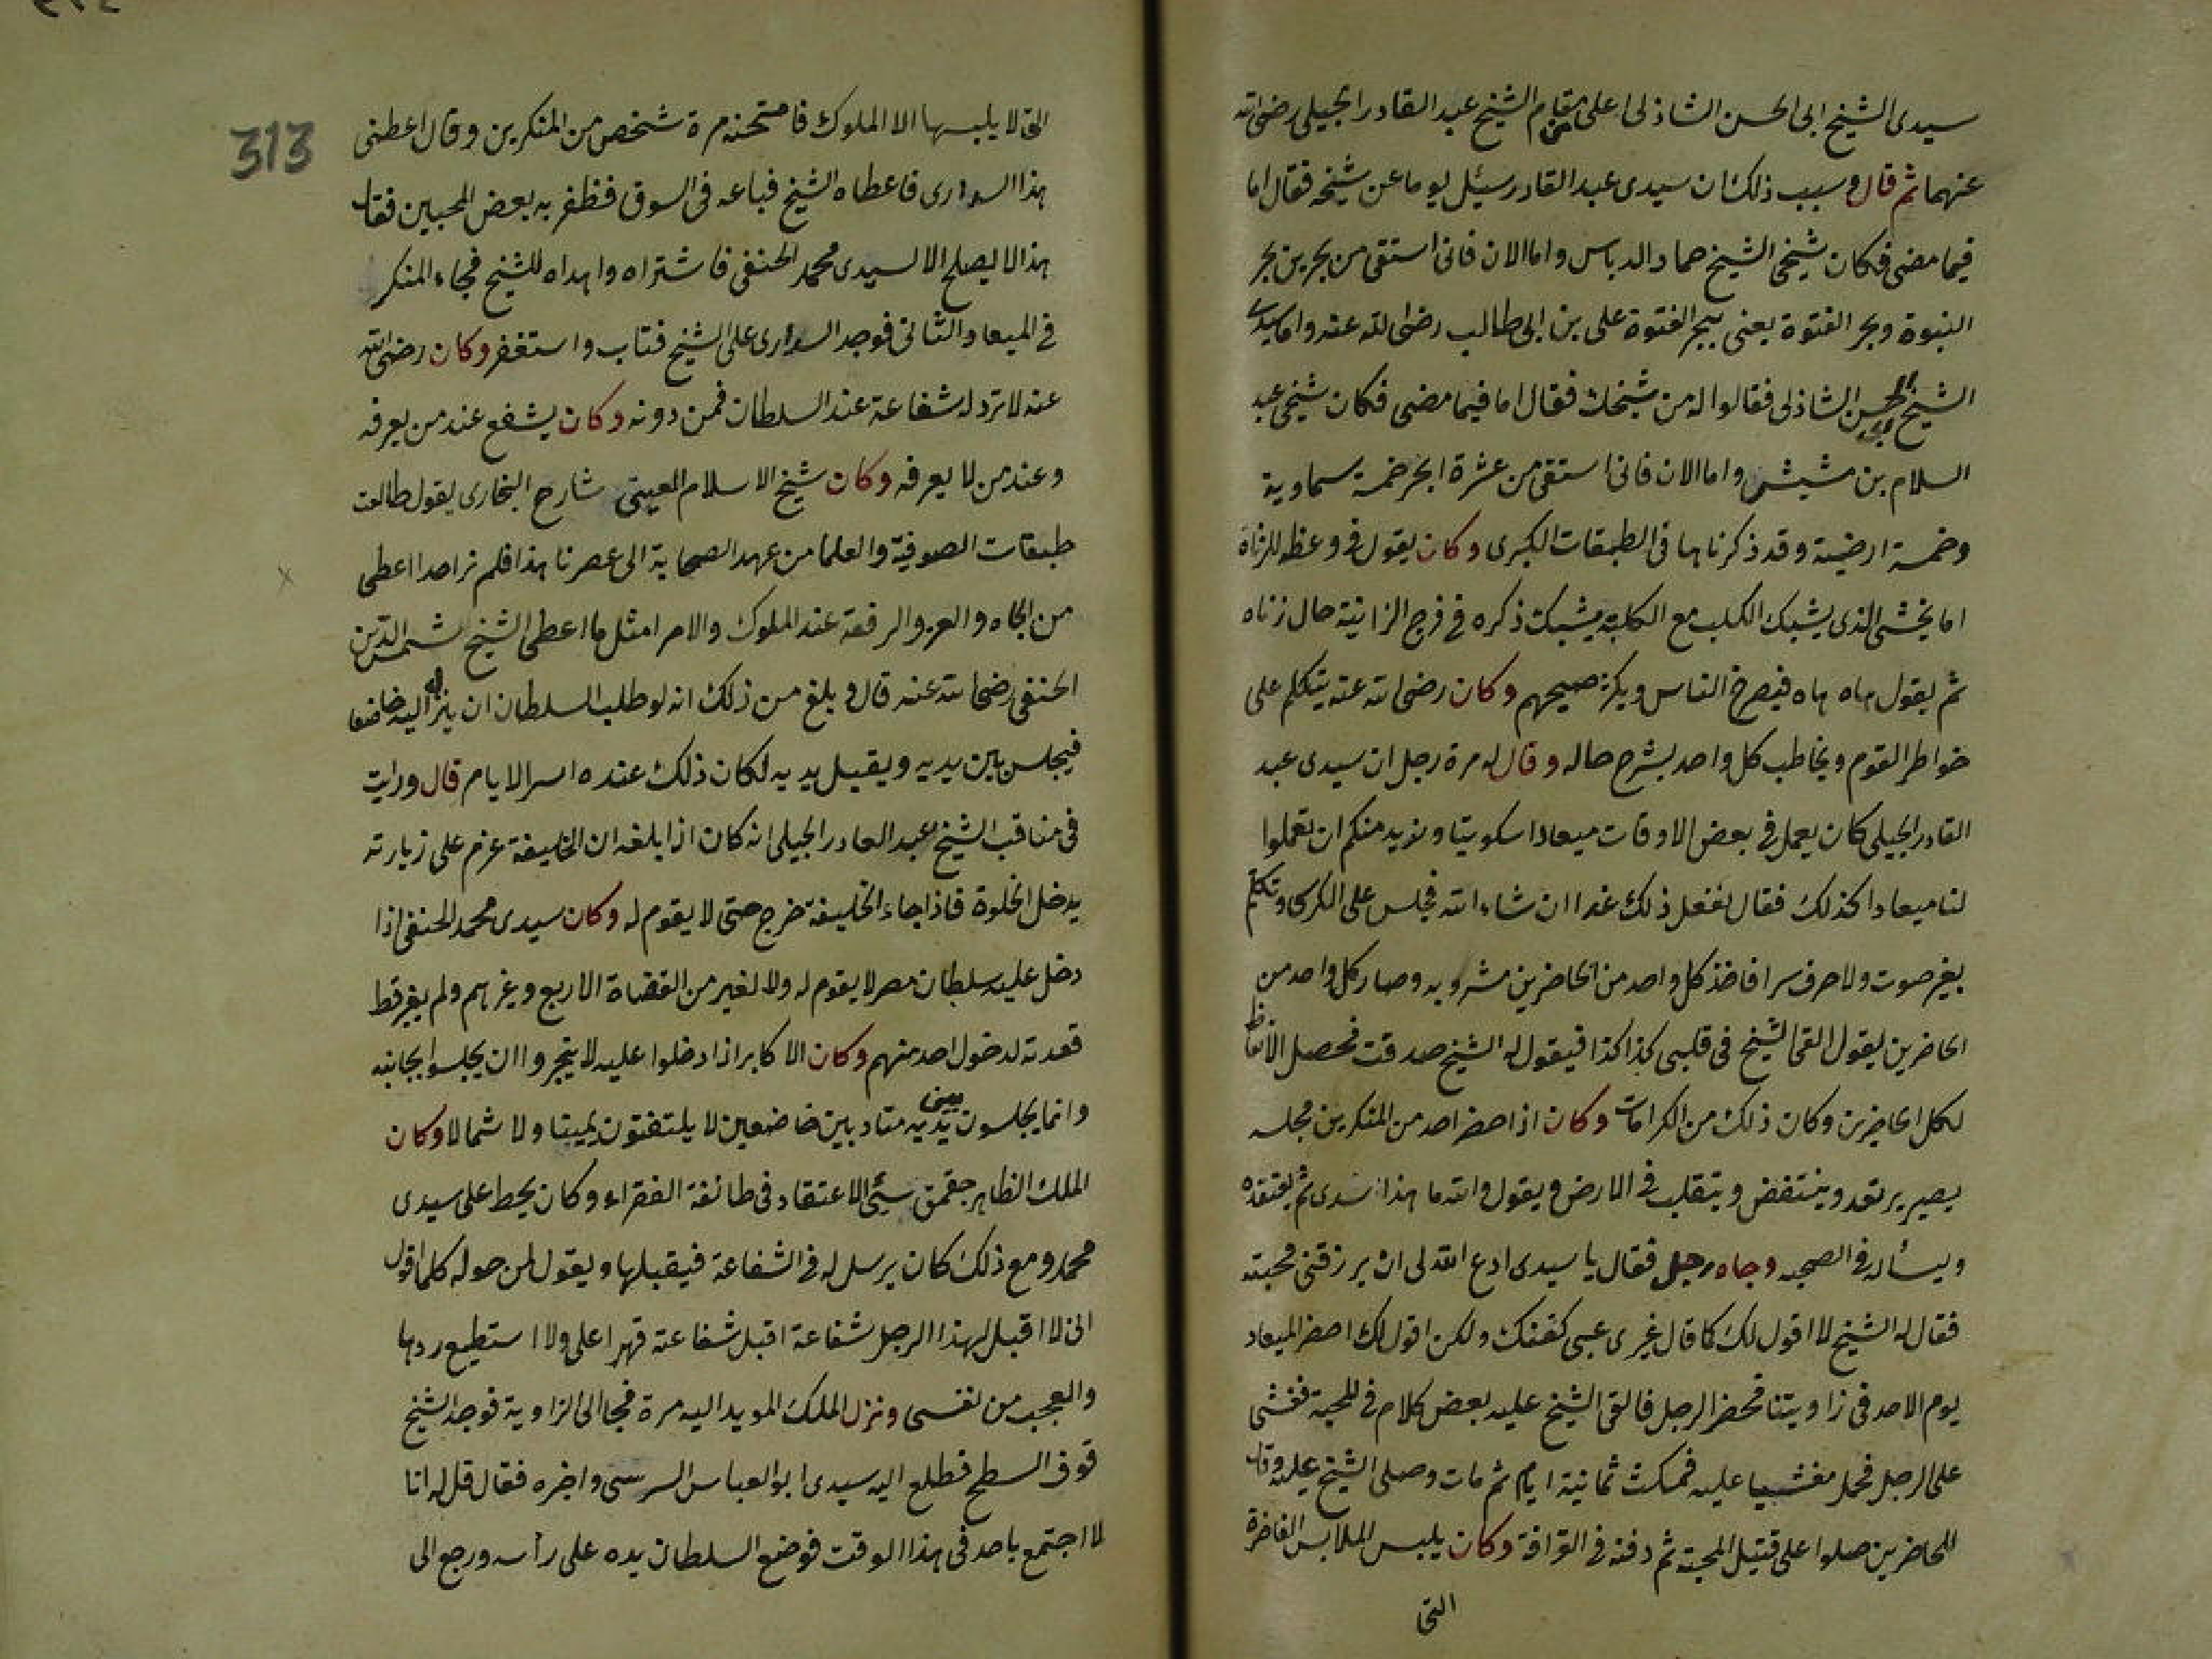 سيدى الشيخ ابى الحسن الشاذلى اعلى من مقام الشيخ عبد القادر الجيلى رضى الله
عنهما ثم قال و سبب ذلك ان سيدى عبد القادر سئل يوما عن شيخه فقال اما
فيما مضى فكان شيخى الشيخ حماد الدباس واما الان فانى استقى من بحرين بحر
النبوة وبحر الفتوة يعنى ببحر الفتوة على بن ابى طالب رضى الله عنه واما سيدى
الشيخ ابو الحسن الشاذلى فقالوا له من شيخك فقال اما فيما مضى فكان شيخى عبد
السلام بن مشيش واما الان فانى استقى من عشرة ابحر خمسة سماوية
وخمسة ارضية وقد ذكرناها فى الطبقات الكبرى وكان يقول فى وعظه للزناة
اما يخشى الذى يشبك الكلب مع الكلبة يشبك ذكره فى فرج الزانية حال زناه
ثم يقول هاه هاه فيصرخ الناس ويكثر صيحهم وكان رضى الله عنه يتكلم على
خواطر القوم ويخاطب كل واحد بشرح حاله وقال له مرة رجل ان سيدى عبد
القادر الجيلى كان يعمل فى بعض الاوقات ميعادا سكوتيا ونريد منكم ان تعملوا
لنا ميعادا كذلك فقال نفعل ذلك غدا ان شاء الله فجلس على الكرسى وتكلم
بغير صوت ولا حرف سرا فاخذ كل واحد من الحاضرين مشروبه وصار كل واحد من
الحاضرين يقول القى الشيخ فى قلبى كذا كذا فيقول له الشيخ صدقت فحصل الاتعاظ
لكل الحاضرين وكان ذلك من الكرامات وكان اذا حضر احد من المنكرين مجلسه
يصير يرتعد وينتفض ويتقلب فى الارض ويقول والله ما هذا سدى ثم يعتقده
ويسأله فى الصحبه وجاه رجل فقال يا سيدى ادع الله لى ان يرزقنى محبته
فقال له الشيخ لا اقول لك كما قال غيرى عبى كفنك ولكن اقول لك احضر الميعاد
يوم الاحد فى زاويتنا فحضر الرجل فالقى الشيخ عليه بعض كلام فى المحبة فغشى
على الرجل فحمل مغشيا عليه فمكث ثمانية ايام ثم مات وصلى الشيخ عليه وقال
للحاضرين صلوا على قتيل المحبة ثم دفنه فى القرافة وكان يلبس الملابس الفاخرة
التى
313
التى لا يلبسها الا الملوك فامتحنه مرة شخص من المنكرين وقال اعطنى
هذا السوارى فاعطاه الشيخ فباعه فى السوق فظفر به بعض المحبين فقال
هذا لا يصلح الا لسيدى محمد الحنفى فاشتراه واهداه للشيخ فجاء المنكر
فى الميعاد الثانى فوجد السوارى على الشيخ فتاب واستغفر وكان رضى الله
عنه لا ترد له شفاعة عند السلطان فمن دونه وكان يشفع عند من يعرفه
وعند من لا يعرفه وكان شيخ الاسلام العينى شارح البخارى يقول طالعت
طبقات الصوفية والعلما من عهد الصحابة الى عصرنا هذا فلم نر احدا اعطى
من الجاه والعز والرفعة عند الملوك والامرا مثل ما اعطى الشيخ شمس الدين
الحنفى رضى الله عنه قال و بلغ من ذلك انه لو طلب السلطان ان ينزل اليه خاضعا
فيجلس بين يديه ويقبل يديه لكان ذلك عنده اسر الايام قال ورايت
فى مناقب الشيخ عبد القادر الجيلى انه كان اذا بلغه ان الخليفة عزم على زيارته
يدخل الخلوة فاذا جاء الخليفة خرج حتى لا يقوم له وكان سيدى محمد الحنفى اذا
دخل عليه سلطان مصر لا يقوم له ولا لغير من القضاة الاربع وغيرهم ولم يغير قط
قعدته لدخول احد منهم وكان الاكابر اذا دخلوا عليه لا يتجروا ان يجلسوا بجانبه
وانما يجلسون بين يديه متادبين خاضعين لا يلتفتون يمينا ولا شمالا وكان
الملك الظاهر جقمق سيئ الاعتقاد فى طائفة الفقراء وكان يحط على سيدى
محمد ومع ذلك كان يرسل له فى الشفاعة فيقبلها ويقول لمن حوله كلما اقول
انى لا اقبل لهذا الرجل شفاعة اقبل شفاعته قهرا على ولا استطيع ردها
والعجب من نفسى ونزل الملك المويد اليه مرة فجا الى الزاوية فوجد الشيخ
فوق السطح فطلع اليه سيدى ابو العباس السرسى واخبره فقال قل له انا
لا اجتمع باحد فى هذا الوقت فوضع السلطان يده على رأسه ورجع الى